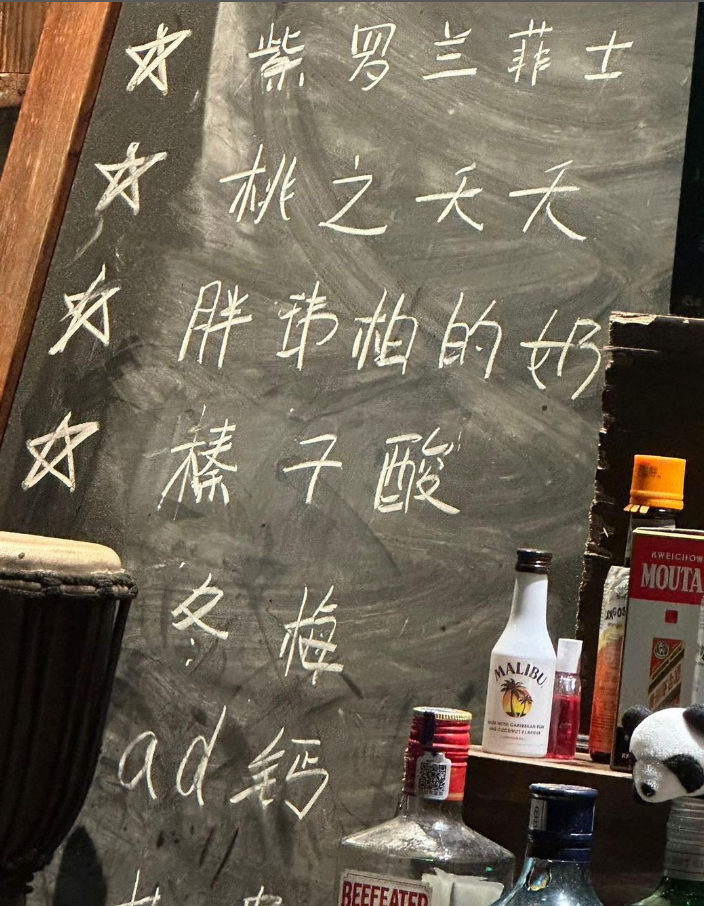 ☆ 紫罗兰菲士
☆ 桃之夭夭
☆ 胖玮柏的奶
☆ 榛子酸
冬梅
ad钙
MALIBU
KWEICHOW
MOUTA
BEEFEATER